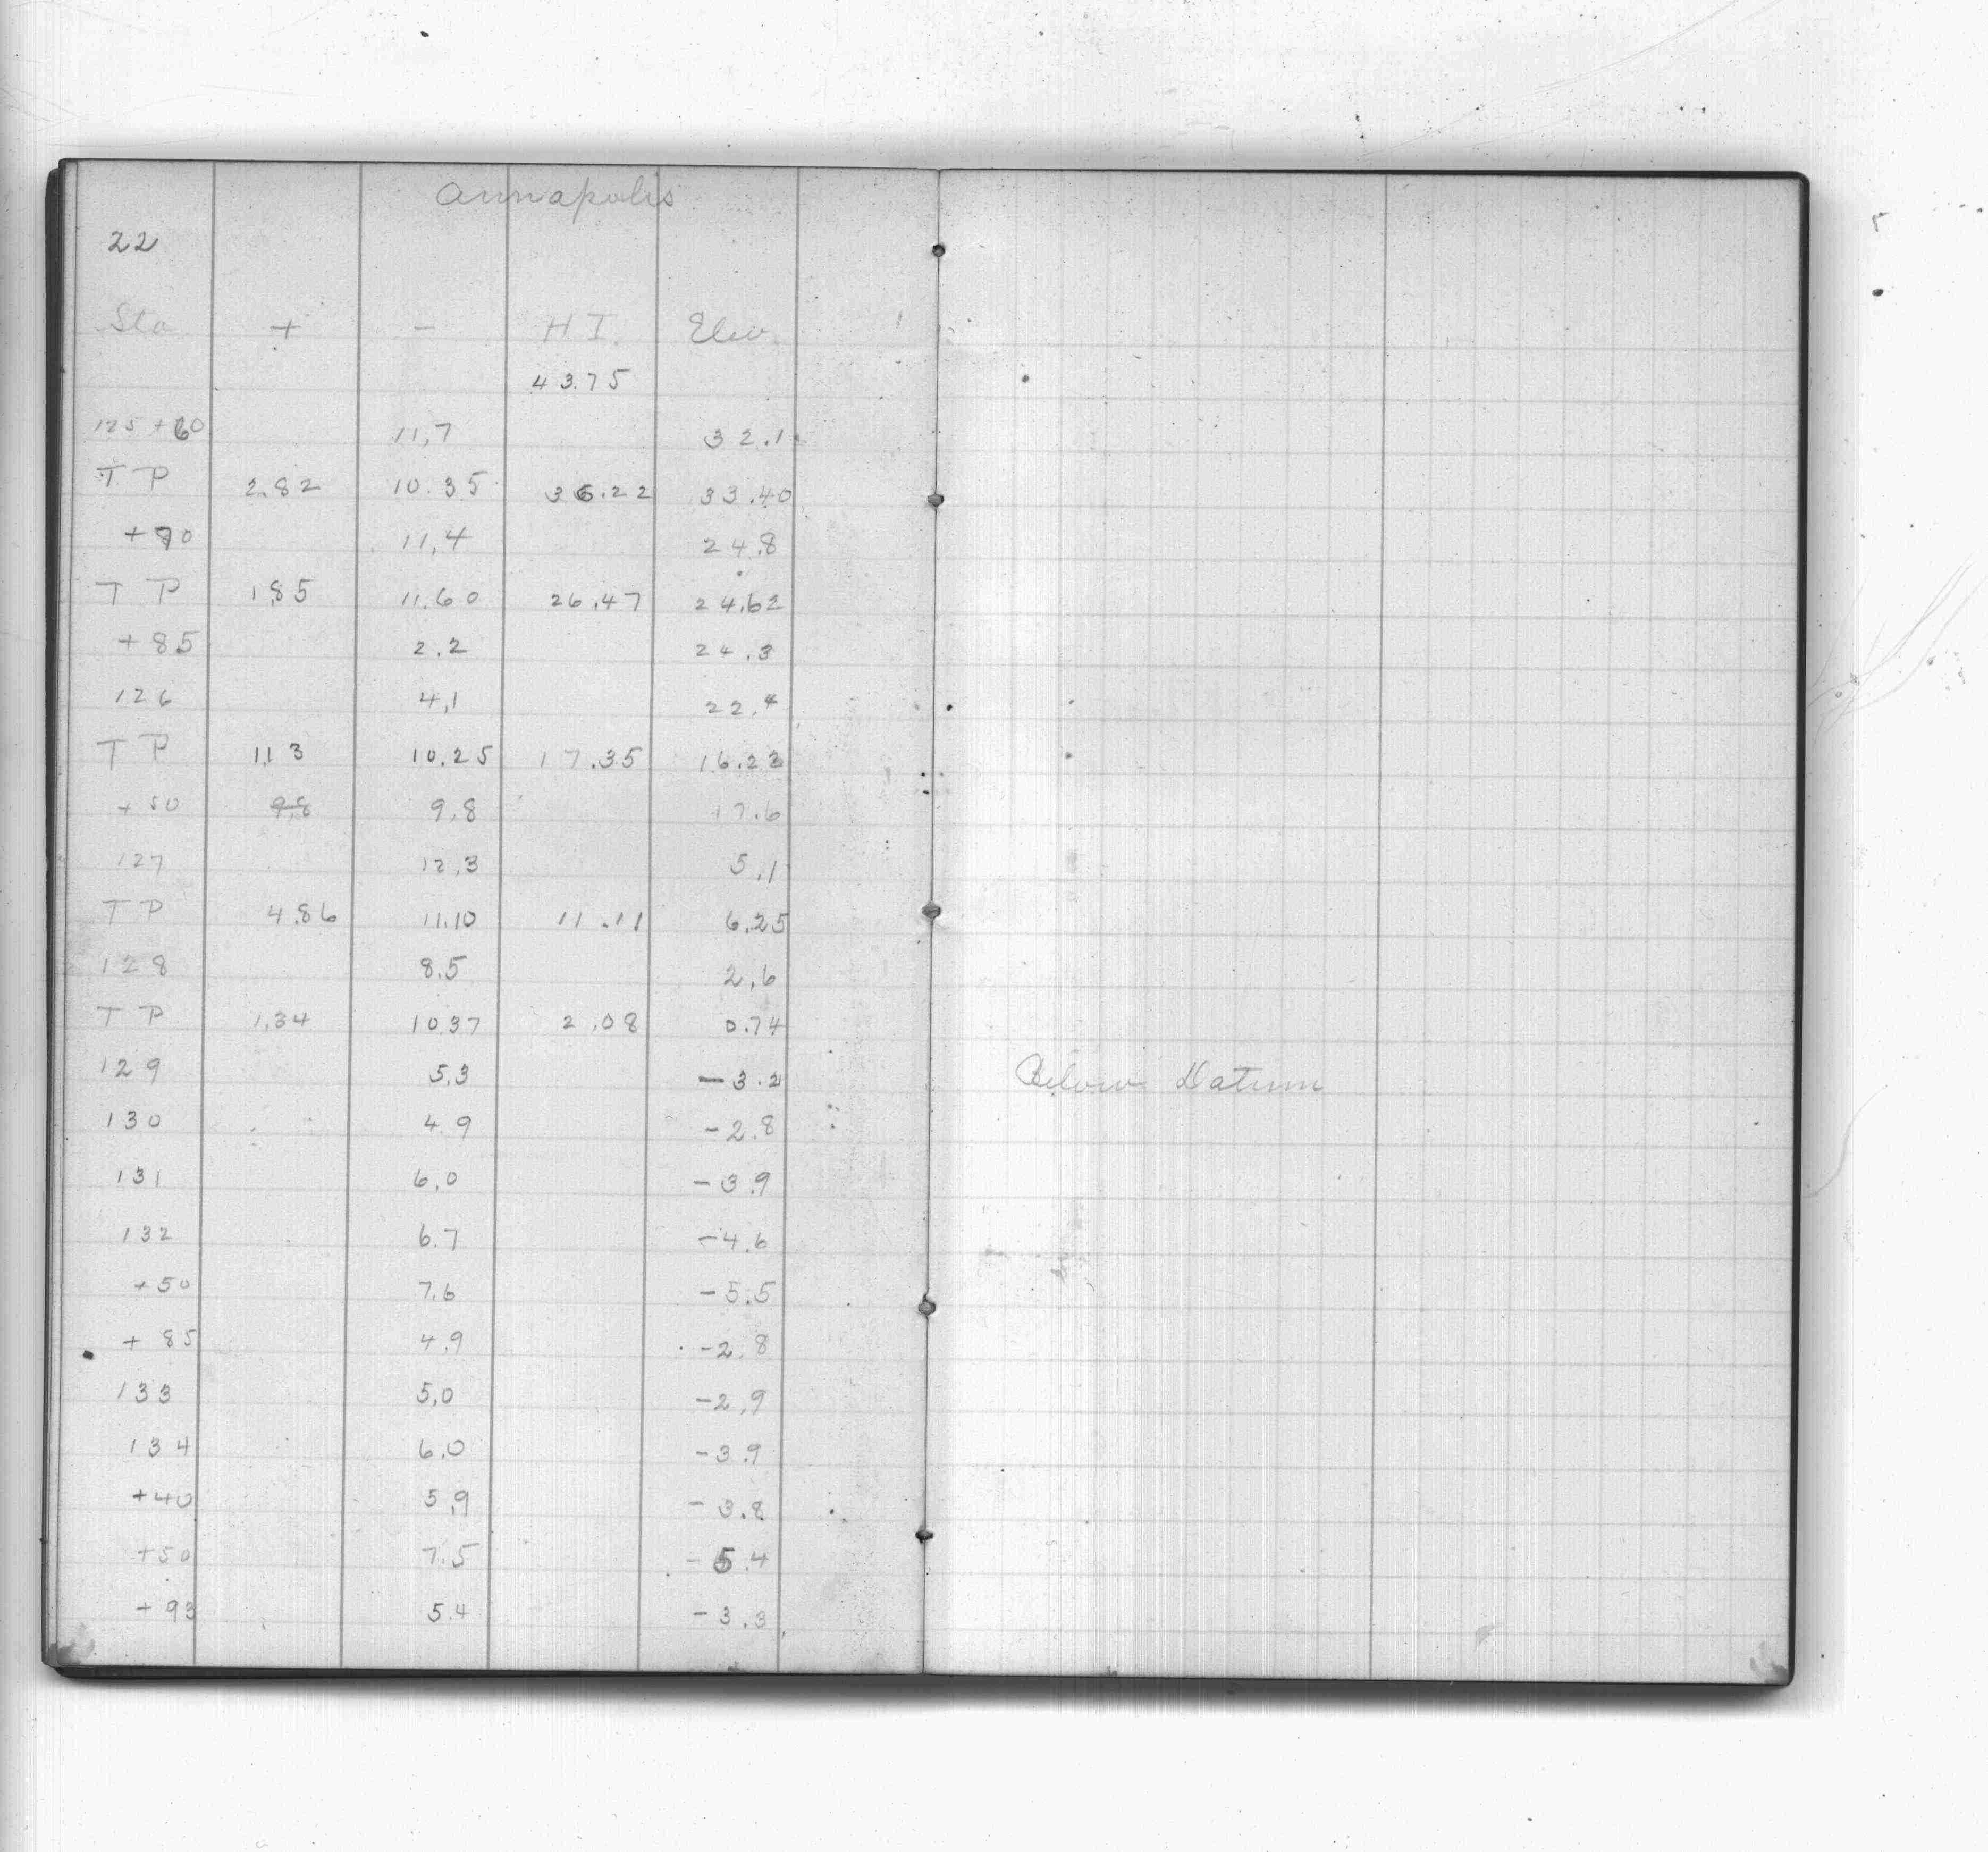 Annapolis
22
Sta + - H I. Elev.
43.75
125 + 60 11.7 32.1
T P 2.82 10.35 36.22 33.40
+70 11.4 24.8
T P 1.85 11.60 26.47 24.62
+85 2.2 24.3
126 4.1 22.4
T P 1.13 10.25 17.35 16.22
+50 9.8 9.8 7.6
127 12.3 5.1
T P 4.86 11.10 11.11 6.25
128 8.5 2.6
T P 1.34 10.37 2.08 0.74
129 5.3 -3.2 Below Datum
130 4.9 -2.8
131 6.0 -3.9
132 6.7 -4.6
+50 7.6 -5.5
+85 4.9 -2.8
133 5.0 -2.9
134 6.0 -3.9
+40 5.9 -3.8
+50 7.5 -5.4
+93 5.4 -3.3